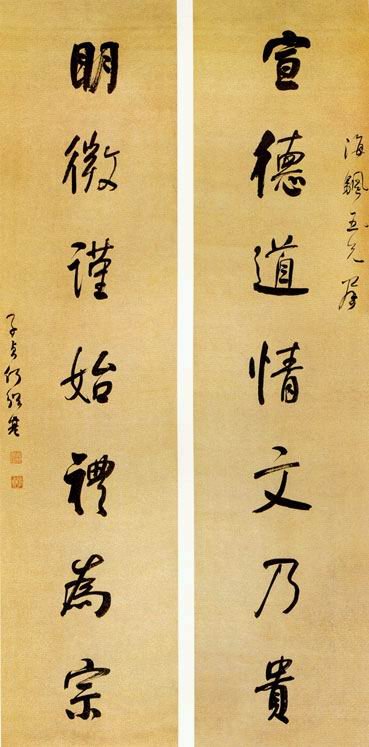 海颿五兄
宣德道情文乃貴
明微謹始禮為宗
子貞何紹基